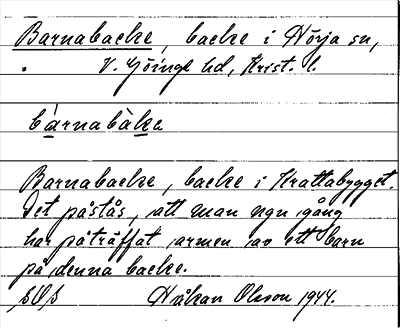 Barnabacke, backe i Nörja sn,
V. Göinge hd, Krist. l.
bárnabàka
Barnabacke, backe i Krattabygget.
Det påstås, att man ngn gång
har påträffat armen av ett barn
på denna backe.
Håkan Olsson 1944.